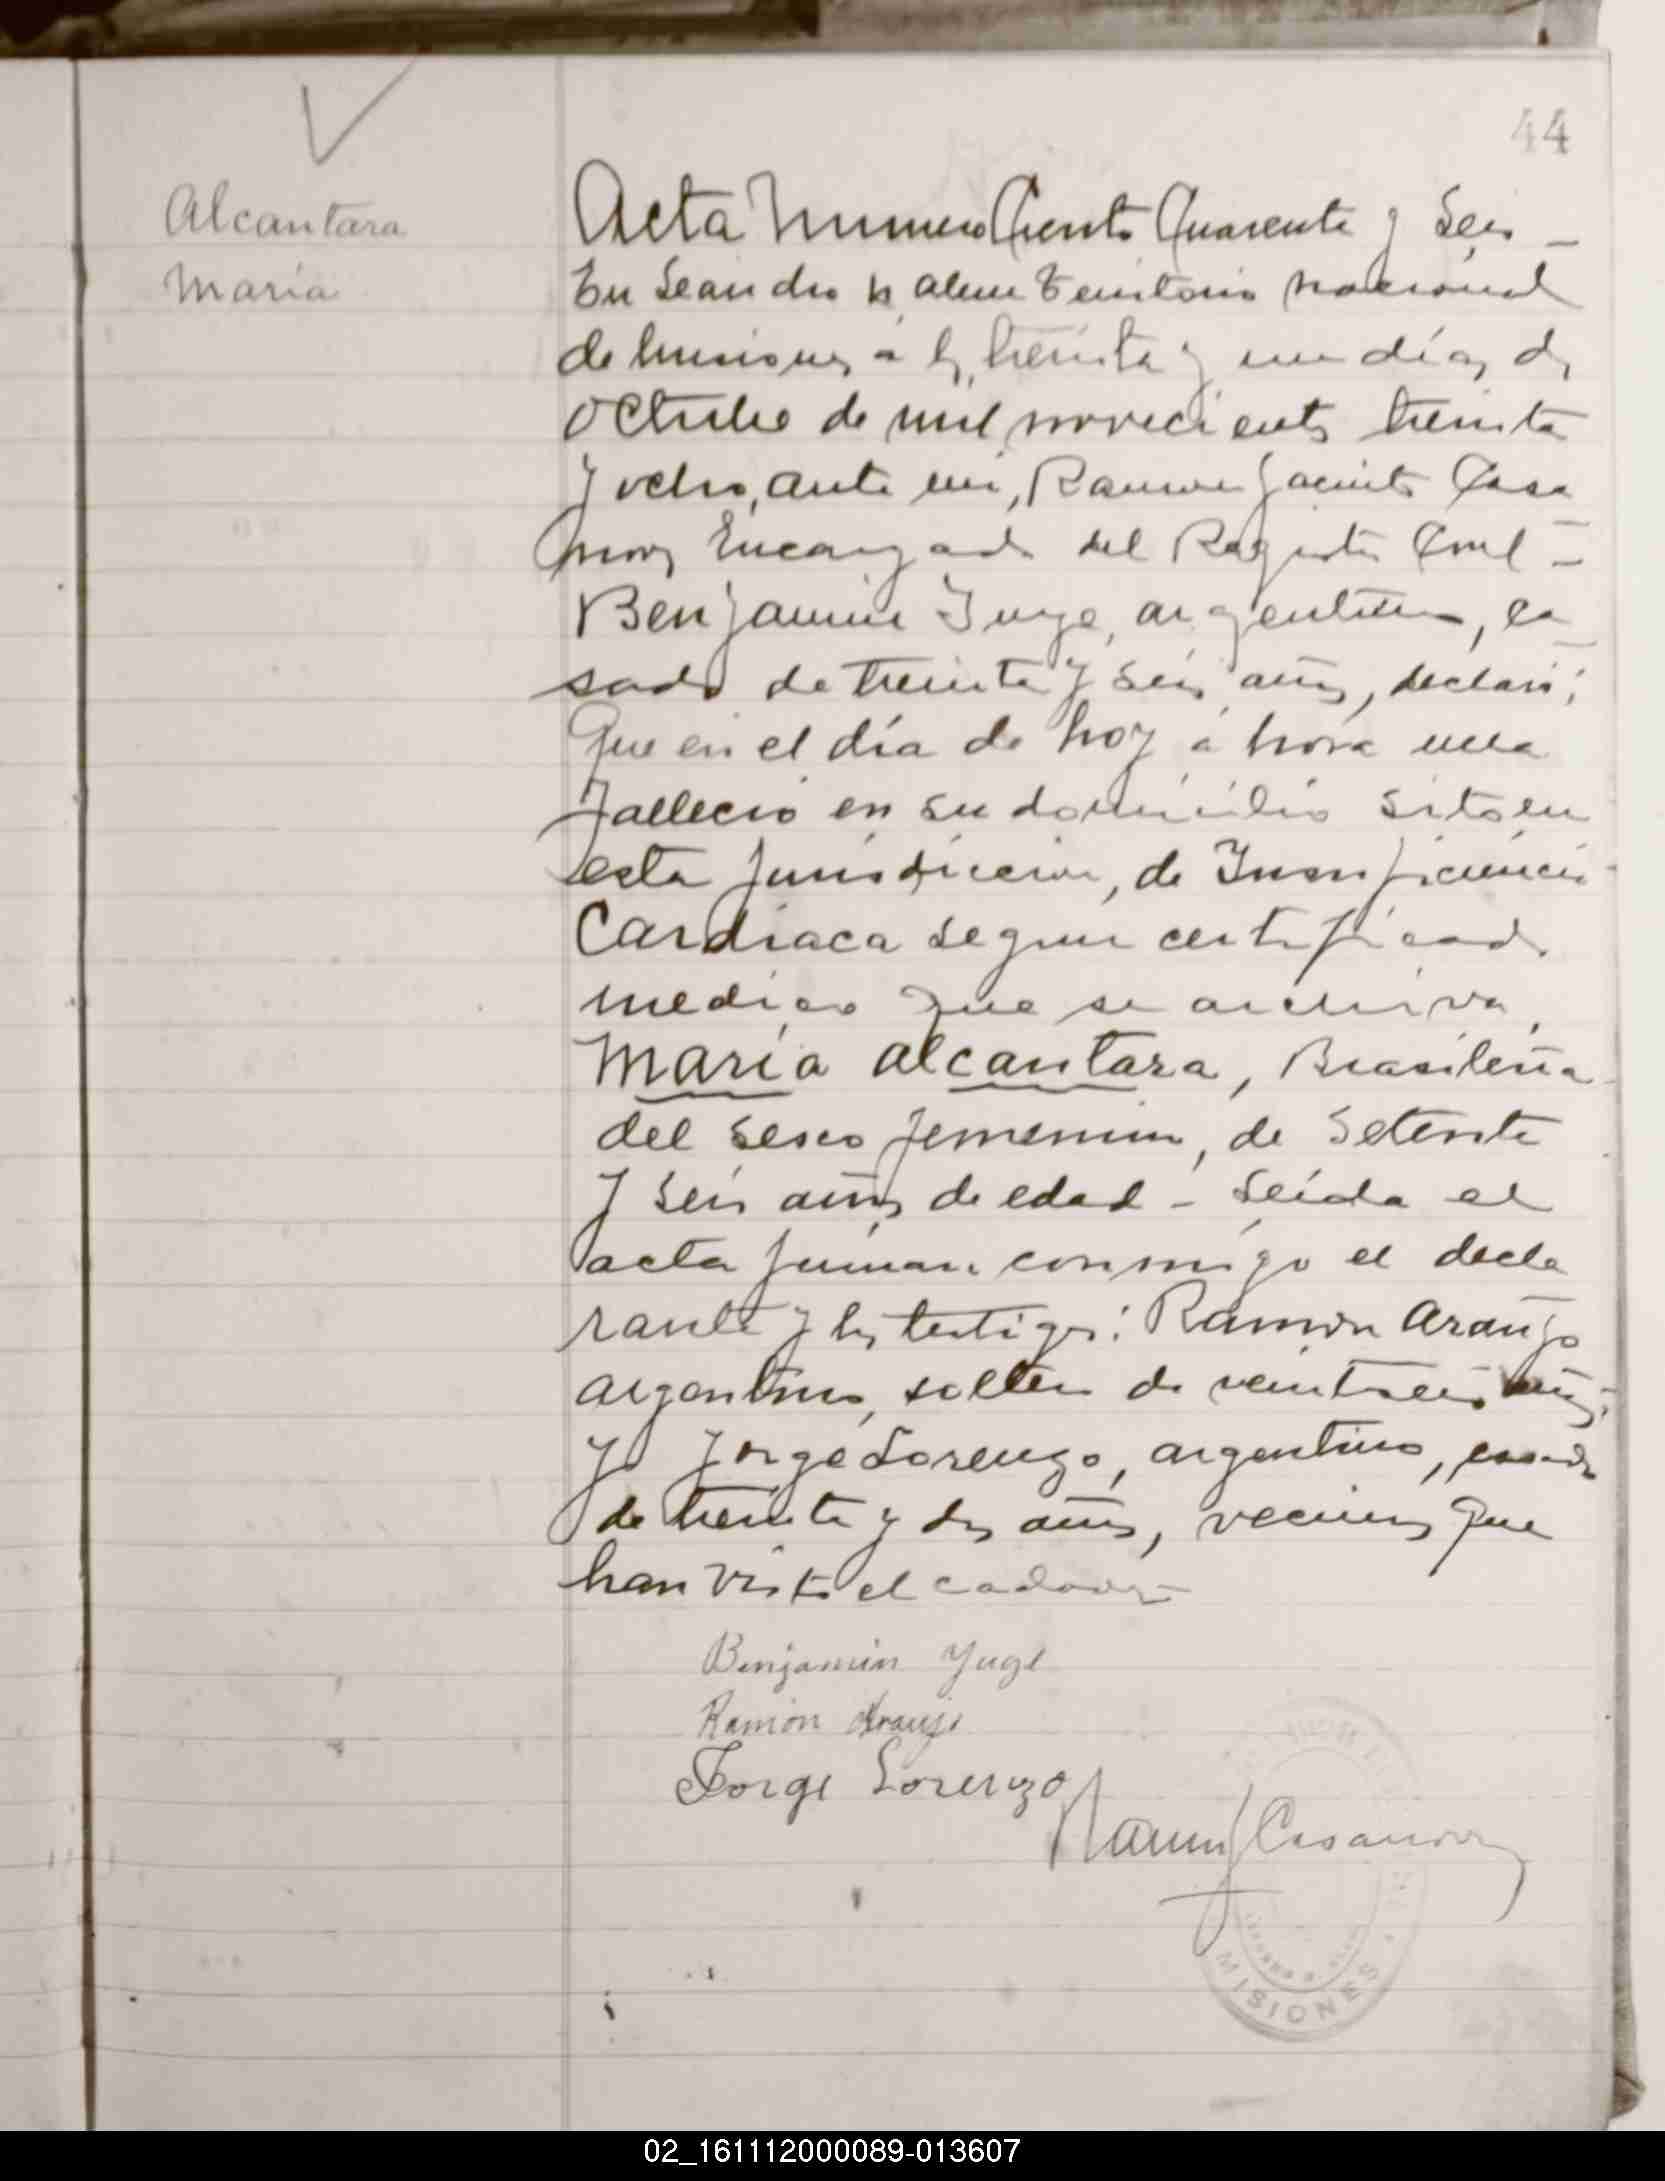 44
Alcantara
María
Acta Numero Ciento Cuarenta y Seis -
En Leandro N Alem Territorio nacional
de Misiones a los treinta y un días de
Octubre de mil novecientos treinta
y ocho, ante mi, Ramon Jacinto Casa
nova Encargado del Registro Civil -
Benjamin Yuge, argentino, ca
sado de treinta y seis años, declaró:
Que en el día de hoy a hora una
fallecio en su domicilio sito en
esta jurisdiccion, de Insuficiencia
Cardiaca segun certificado
medico que se archiva,
María Alcantara, Brasileña
del sexo femenino, de Setenta
y seis años de edad - Leida el
acta firman conmigo el decla
rante y los testigos: Ramon Araujo
argentino, soltero de veintiseis años;
y Jorge Lorenzo, argentino, casado
de treinta y dos años, vecinos que
han visto el cadaver
Benjamin Yuge
Ramón Araujo
Jorge Lorenzo
Ramon J Casanova
MISIONES
02_161112000089-013607